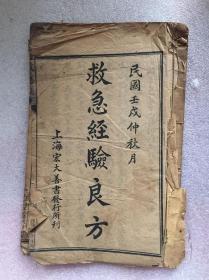 民國壬戌仲秋月
救急經驗良方
上海宏大善書發行所刊